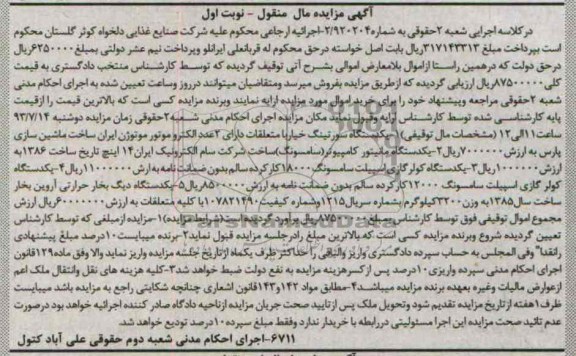 آگهی مزایده مال منقول - نوبت اول
درکلاسه اجرایی شعبه ۲حقوقی به شماره۲/۹۲۰۲۰۴-اجراییه ارجاعی محکوم علیه شرکت صنایع غذایی دلخواه کوثر گلستان محکوم
است بپرداخت مبلغ ۳۱۷۱۴۳۳۱۳ریال بابت اصل خواسته درحق محکوم له قربانعلی ایرانلو وپرداخت نیم عشر دولتی بمبلغ۶۲۵۰۰۰۰ریال
درحق دولت که درهمین راستا ازاموال بلامعارض اموالی بشرح آتی توقیف گردیده که توسط کارشناس منتخب دادگستری به قیمت
کلی۸۷۵۰۰۰۰۰ریال ارزیابی گردیده که ازطریق مزایده بفروش میرسد ومتقاضیان میتوانند درروز وساعت تعیین شده به اجرای احکام مدنی
شعبه ۲حقوقی مراجعه وپیشنهاد خود را برای خرید اموال مورد مزایده ارایه نمایند وبرنده مزایده کسی است که بالاترین قیمت را ازقیمت
پایه کارشناسی شده توسط کارشناس ارایه وقبول نماید مکان مزایده اجرای احکام مدنی شعبه۲حقوقی زمان مزایده دوشنبه ۹۳/۷/۱۴
ساعت ۱۱الی۱۲ (مشخصات مال توقیفی) ۱-یکدستگاه سورتینگ خیاربا متعلقات دارای ۲عددالکترو موتور موتوژن ایران ساخت ماشین سازی
پارس به ارزش۷۰۰۰۰۰۰۰ریال۲-یکدستگاه مانیتور کامپیوتر(سامسونگ)ساخت شرکت سام الکترونیک ایران۱۴ اینچ تاریخ ساخت ۱۳۸۶به
ارزش۱۰۰۰۰۰۰ریال۳-یکدستگاه کولرگازی اسپیلت سامسونگ ۱۸۰۰۰کارکرده سالم بدون ضمانت نامه به ارزش ۱۱۰۰۰۰۰۰ریال۴-یکدستگاه
کولر گازی اسپیلت سامسونگ ۱۲۰۰۰کارکرده سالم بدون ضمانت نامه به ارزش۸۵۰۰۰۰۰ریال۵-یکدستگاه دیگ بخار حرارتی آروین بخار
ساخت سال۱۳۸۵به وزن۳۲۰۰کیلوگرم بشماره سریال۱۲۱۵وشماره کیفیت۱۰۷۸۲۱۴۹۰با کلیه متعلقات به ارزش۶۰۰۰۰۰۰۰ریال ارزش
مجموع اموال توقیفی فوق توسط کارشناس بمبلغ۸۷۵۰۰۰۰۰ریال برآورد گردیده است(شرایط مزایده)۱-مزایده ازمبلغی که توسط کارشناس
تعیین گردیده شروع وبرنده مزایده کسی است که بالاترین مبلغ رادرجلسه مزایده قبول نماید۲-برنده میبایست۱۰درصد مبلغ پیشنهادی
رانقدا" وفی المجلس به حساب سپرده دادگستری واریز والباقی را حداکثر ظرف یکماه ازتاریخ جلسه مزایده واریز نماید والا وفق ماده۱۲۹قانون
اجرای احکام مدنی سپرده واریزی۱۰درصد پس از کسرهزینه مزایده به نفع دولت ضبط خواهد شد۳-کلیه هزینه های نقل وانتقال ملک اعم
ازعوارض مالیات وغیره بعهده برنده مزایده میباشد۴-مطابق مواد ۱۴۲و۱۴۳قانون اشعاری چنانچه شکایتی راجع به مزایده باشد میبایست
ظرف۱هفته ازتاریخ مزایده تقدیم شود وتحویل ملک پس ازتایید صحت جریان مزایده ازناحیه دادگاه صادر کننده اجرائیه خواهد بود درصورت
عدم تائید صحت مزایده این اجرا مسئولیتی دررابطه با خریدار ندارد وفقط مبلغ سپرده۱۰درصد تودیع خواهد شد.
۶۷۱۱-اجرای احکام مدنی شعبه دوم حقوقی علی آباد کتول